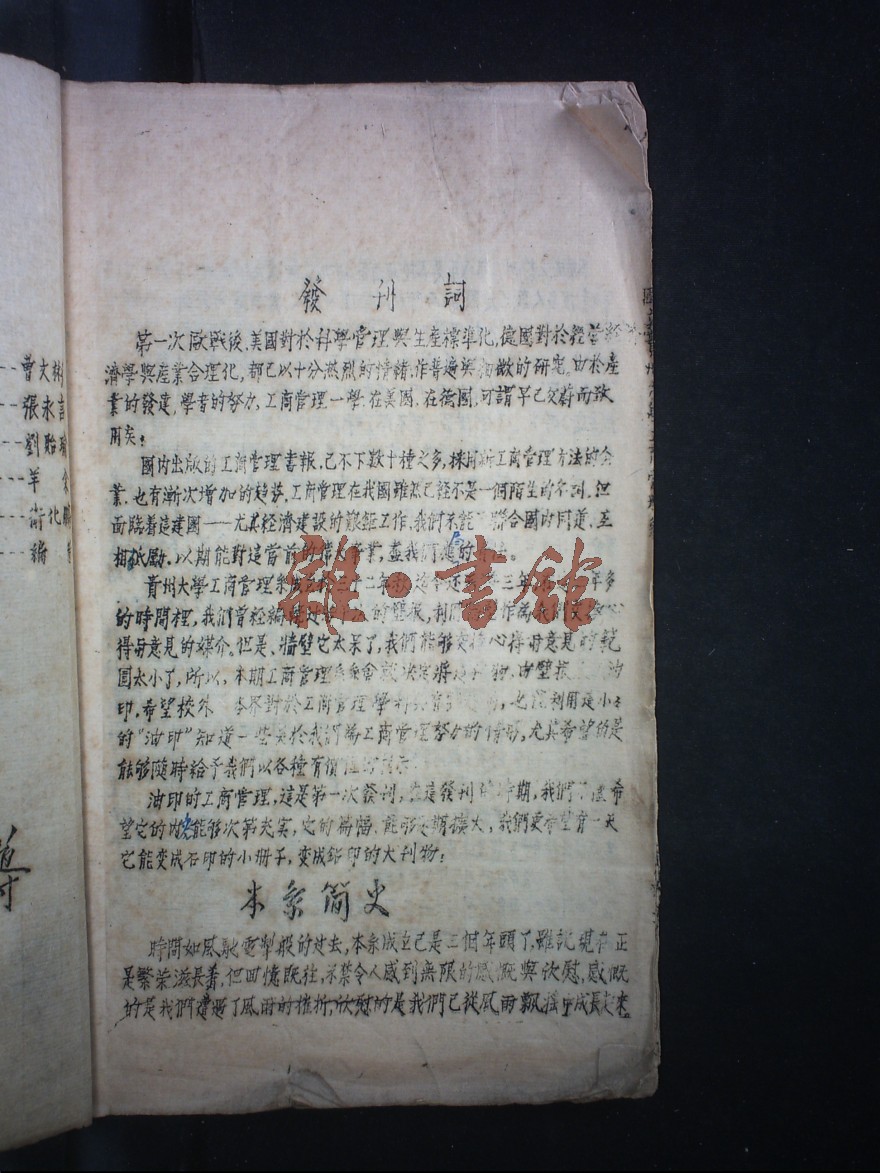 發刊詞
第一次歐戰後、美國對於科學管理與生產標準化,德國對於經營經
濟學與產業合理化,都已以十分熱烈的情緒,作普遍與 的研究。由於產
業的發達,學者的努力,工商管理一學,在美國、在德國,可謂早已 而致
用矣:
國內出版的工商管理書報、已不下數十種之多,採用新工商管理方法的企
業、也有漸次增加的趨勢,工商管理在我國雖然已經不是一個陌生的名詞,但
面臨着這建國——尤其經濟建設的艱鉅工作,我們不能 聯合國內同道、互
相砥勵、以期能對這當前的偉大事業,盡我們應 的
貴州大學工商管理系成立於三十二年秋,迄今還 三年, 年多
的時間裡,我們曾經編 的壁報,利用 作為我們交換心
得毋意見的媒介。但是、牆壁它太呆了,我們能够交換心得毋意見的範
圍太小了,所以,本期工商管理系系會 決定將這 物、由壁報 油
印,希望校外 各界對於工商管理學 ,也能利用這小小
的“油印”知道一些關於我們為工商管理努力的情形,尤其希望的是
能够隨時給予我們以各種有價值的
油印的工商管理,這是第一次發刊,在這發刊的時期,我們不僅希
望它的內容能够次第充實,它的篇幅、能够逐期擴大,我們更希望有一天
它能变成石印的小冊子,变成鉛印的大刊物:
本系簡史
時間如風馳電掣般的过去,本系成立已是三個年頭了,雖說現在正
是繁荣滋長着,但回憶既往,不禁令人感到無限的感慨與欣慰,感慨
的是我們遭遇了風雨的摧折,欣慰的是我們已從風雨飄摇中成長起來
曹文林
張永言
劉貽
羊
衛化
編